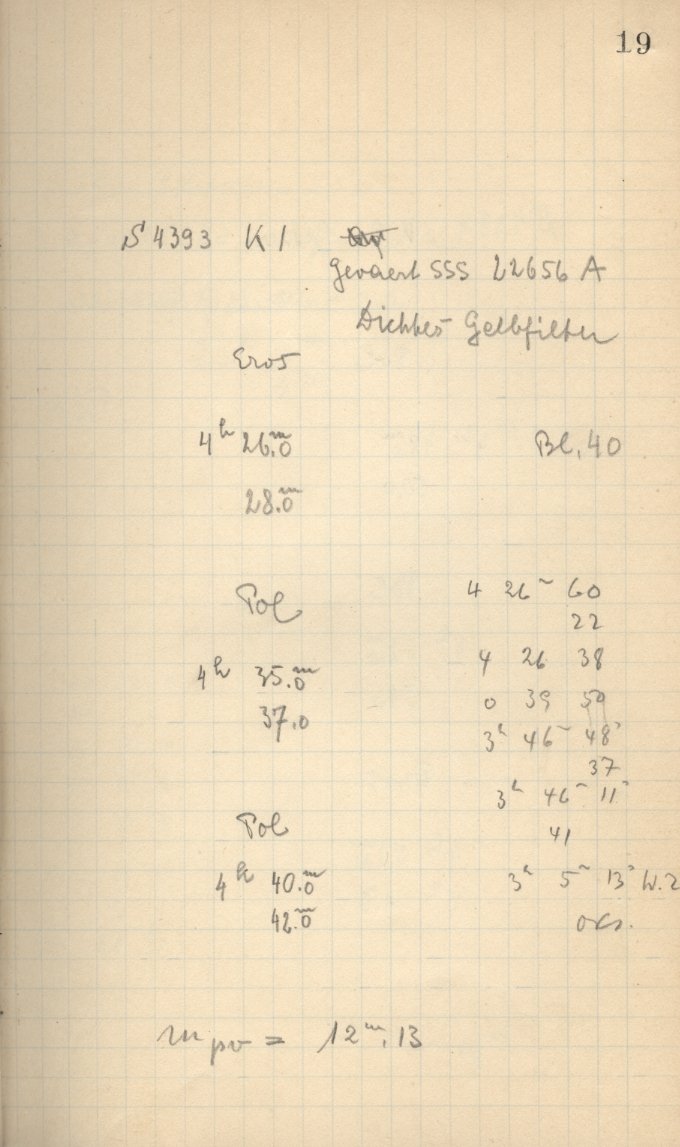 19
S 4393 K 1
Gevaert SSS 22656 A
Dichtes Gelbfilter
Eros
4h 26.m0 Bl. 40
28.m0
Pol 4 26m 60
22
4 26 38
4h 35.m0
0 39 50
37.0
3h 46m 48s
37
3h 46m 11s
Pol
41
4h 40.m0 3h 5m 13s W.Z
42.m0
m pv = 12m.13